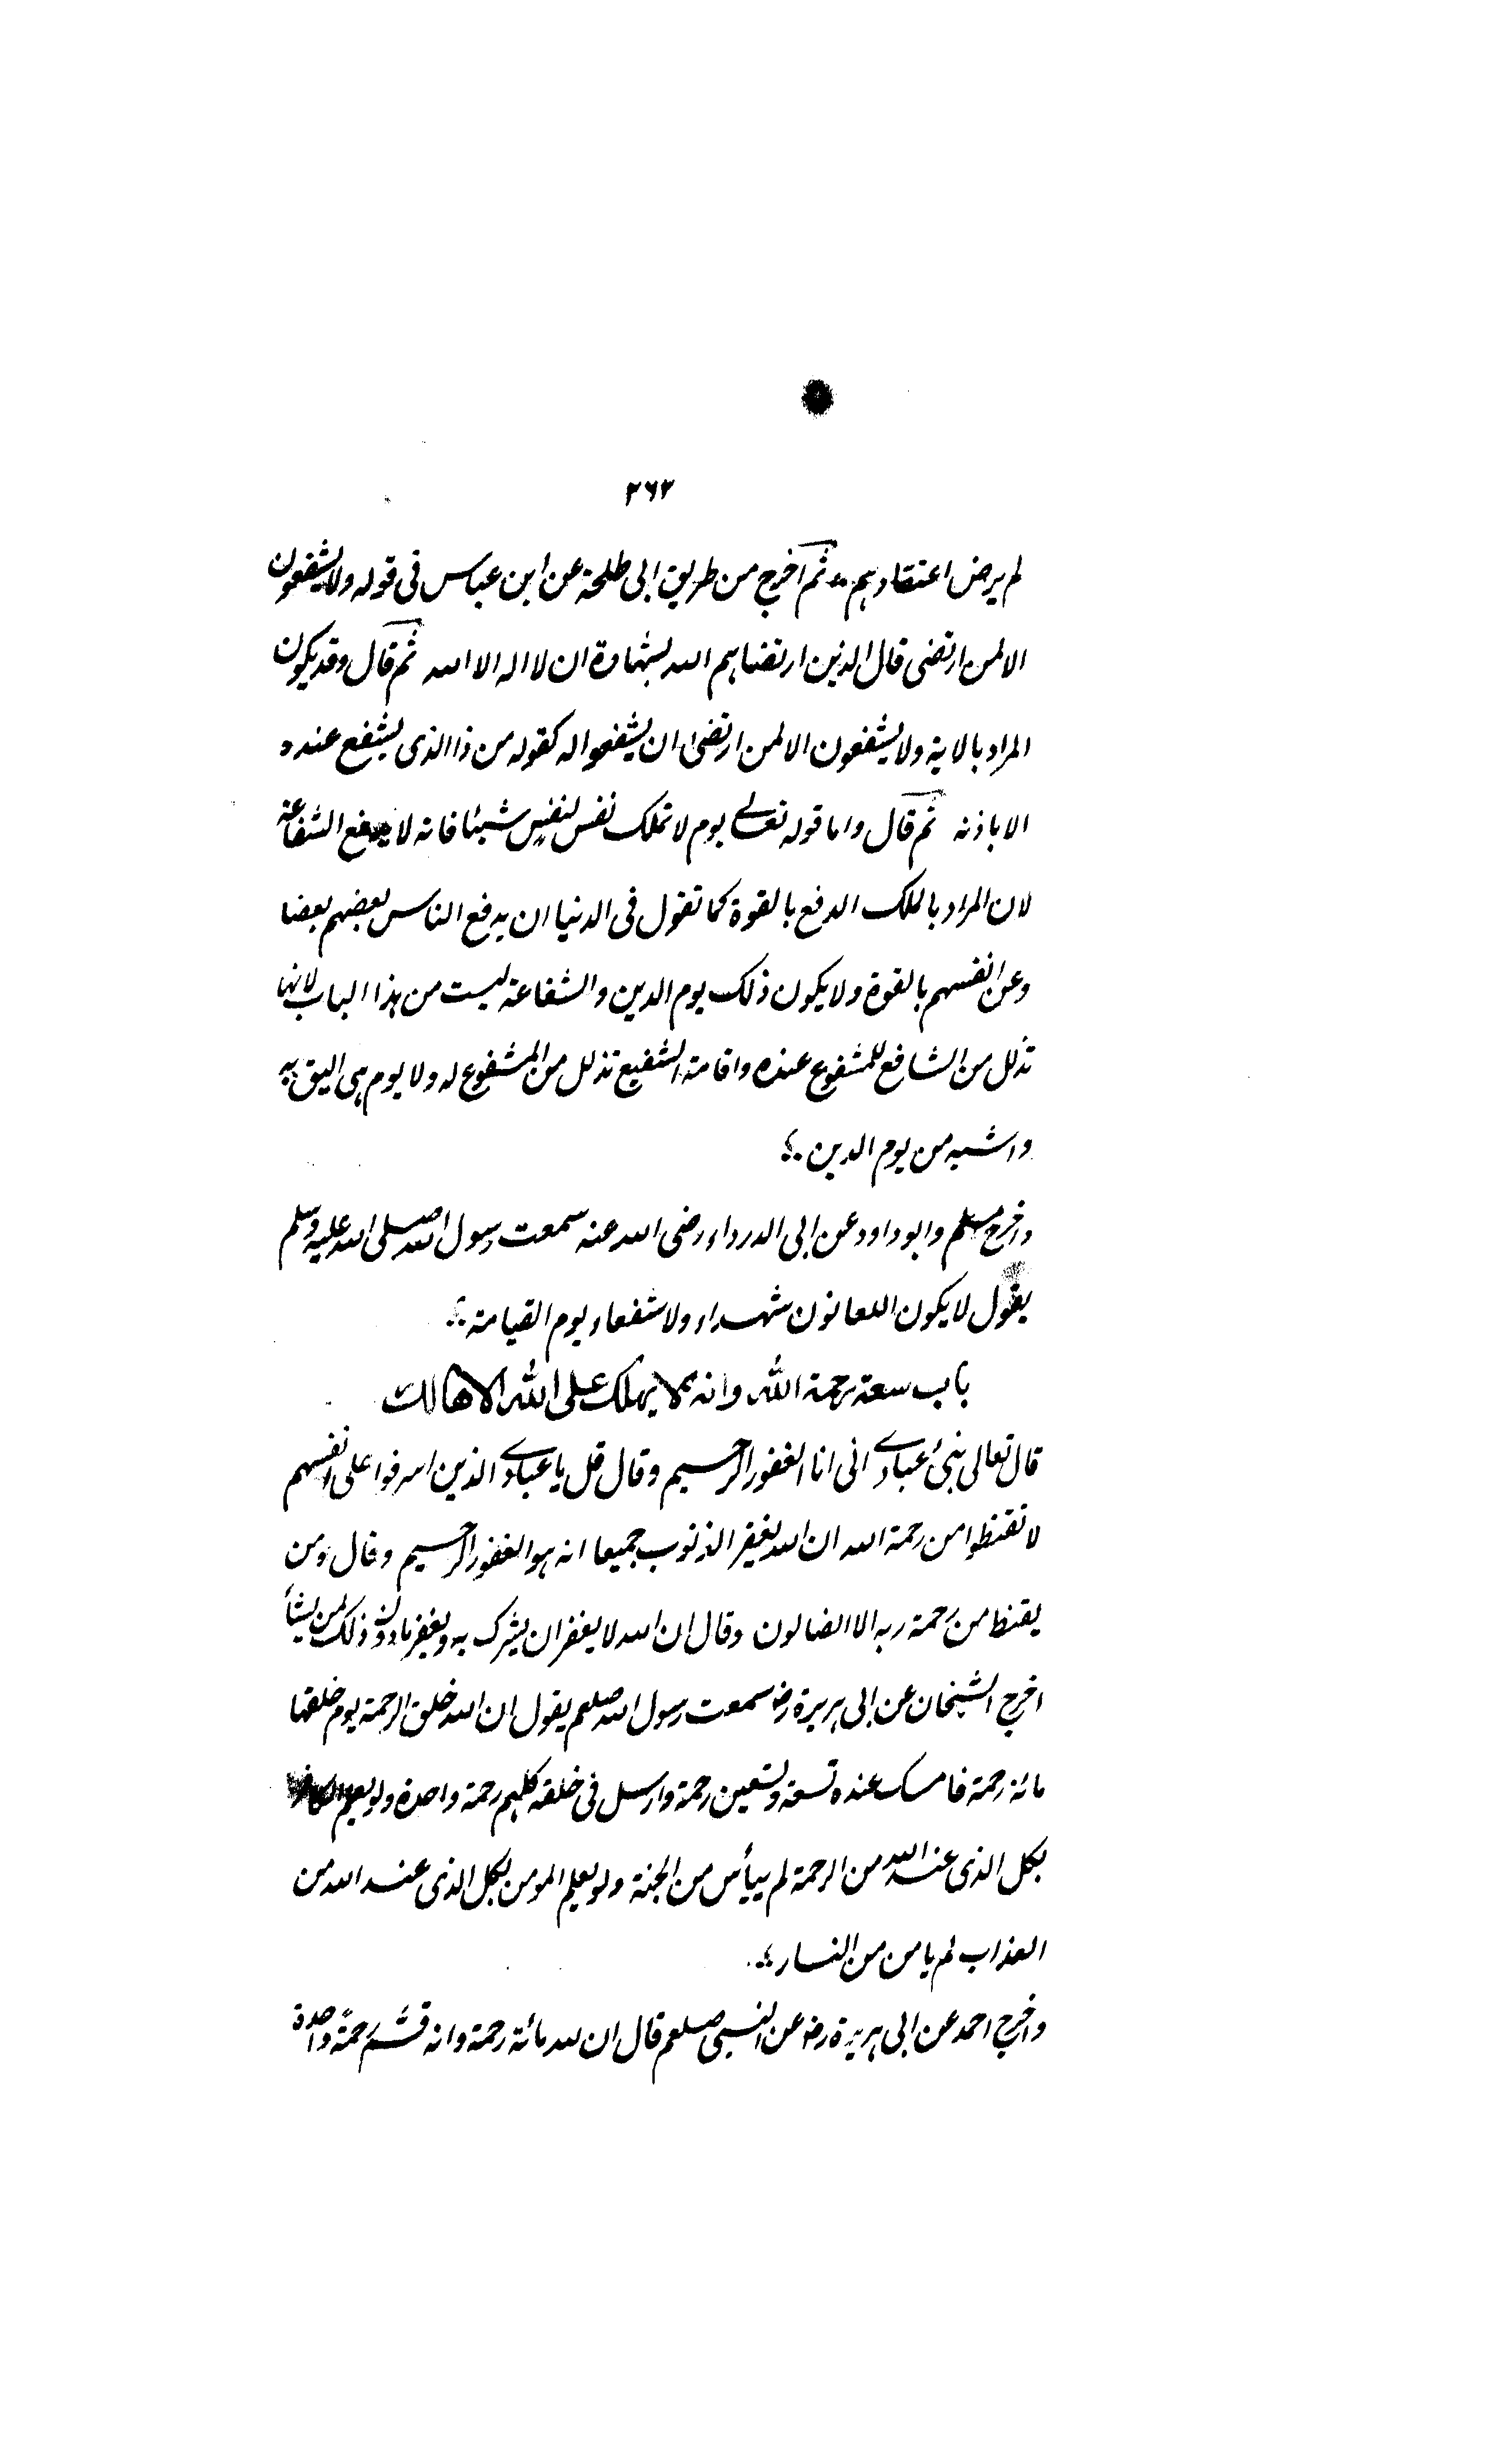 ٢٦٢
لم يرض اعتقادهم ثم اخرج من طريق ابى طلحة عن ابن عباس فى قوله ولا يشفعون
الا لمن ارتضى قال الذين ارتضاهم الله بشهادة ان لا اله الا الله ثم قال وقد يكون
المراد بالاية ولا يشفعون الا لمن ارتضى ان يشفعوا له كقوله من ذا الذى يشفع عنده
الا باذنه ثم قال واما قوله تعالى يوم لا تملك نفس لنفس شيئا فانه لا يدفع الشفاعة
لان المراد بالملك الدفع بالقوة كما تقول فى الدنيا ان يدفع الناس بعضهم بعضا
وعن انفسهم بالقوة ولا يكون ذلك يوم الدين والشفاعة ليست من هذا الباب لانها
تذلل من الشافع للمشفوع عنده واقامة الشفيع تذلل من المشفوع له ولا يوم هى اليق به
واشبه من يوم الدين
واخرج مسلم وابو داود عن ابى الدرداء رضى الله عنه سمعت رسول الله صلى الله عليه وسلم
يقول لا يكون اللعانون شهداء ولا شفعاء يوم القيامة
باب سعة رحمة الله وانه لا يهلك على الله الا هالك
قال تعالى نبئ عبادى انى انا الغفور الرحيم وقال قل يا عبادى الذين اسرفوا على انفسهم
لا تقنطوا من رحمة الله ان الله يغفر الذنوب جميعا انه هو الغفور الرحيم وقال ومن
يقنط من رحمة ربه الا الضالون وقال ان الله لا يغفر ان يشرك به ويغفر ما دون ذلك لمن يشأ
اخرج الشيخان عن ابى هريرة رض سمعت رسول الله صلعم يقول ان الله خلق الرحمة يوم خلقها
مائة رحمة فامسك عنده تسعة وتسعين رحمة وارسل فى خلقه كلهم رحمة واحدة ولو يعلم الكافر
بكل الذى عند الله من الرحمة لم ييأس من الجنة ولو يعلم المومن بكل الذى عند الله من
العذاب لم يامن من النار
واخرج احمد عن ابى هريرة رض عن النبى صلعم قال ان لله مائة رحمة وانه قسم رحمة واحدة